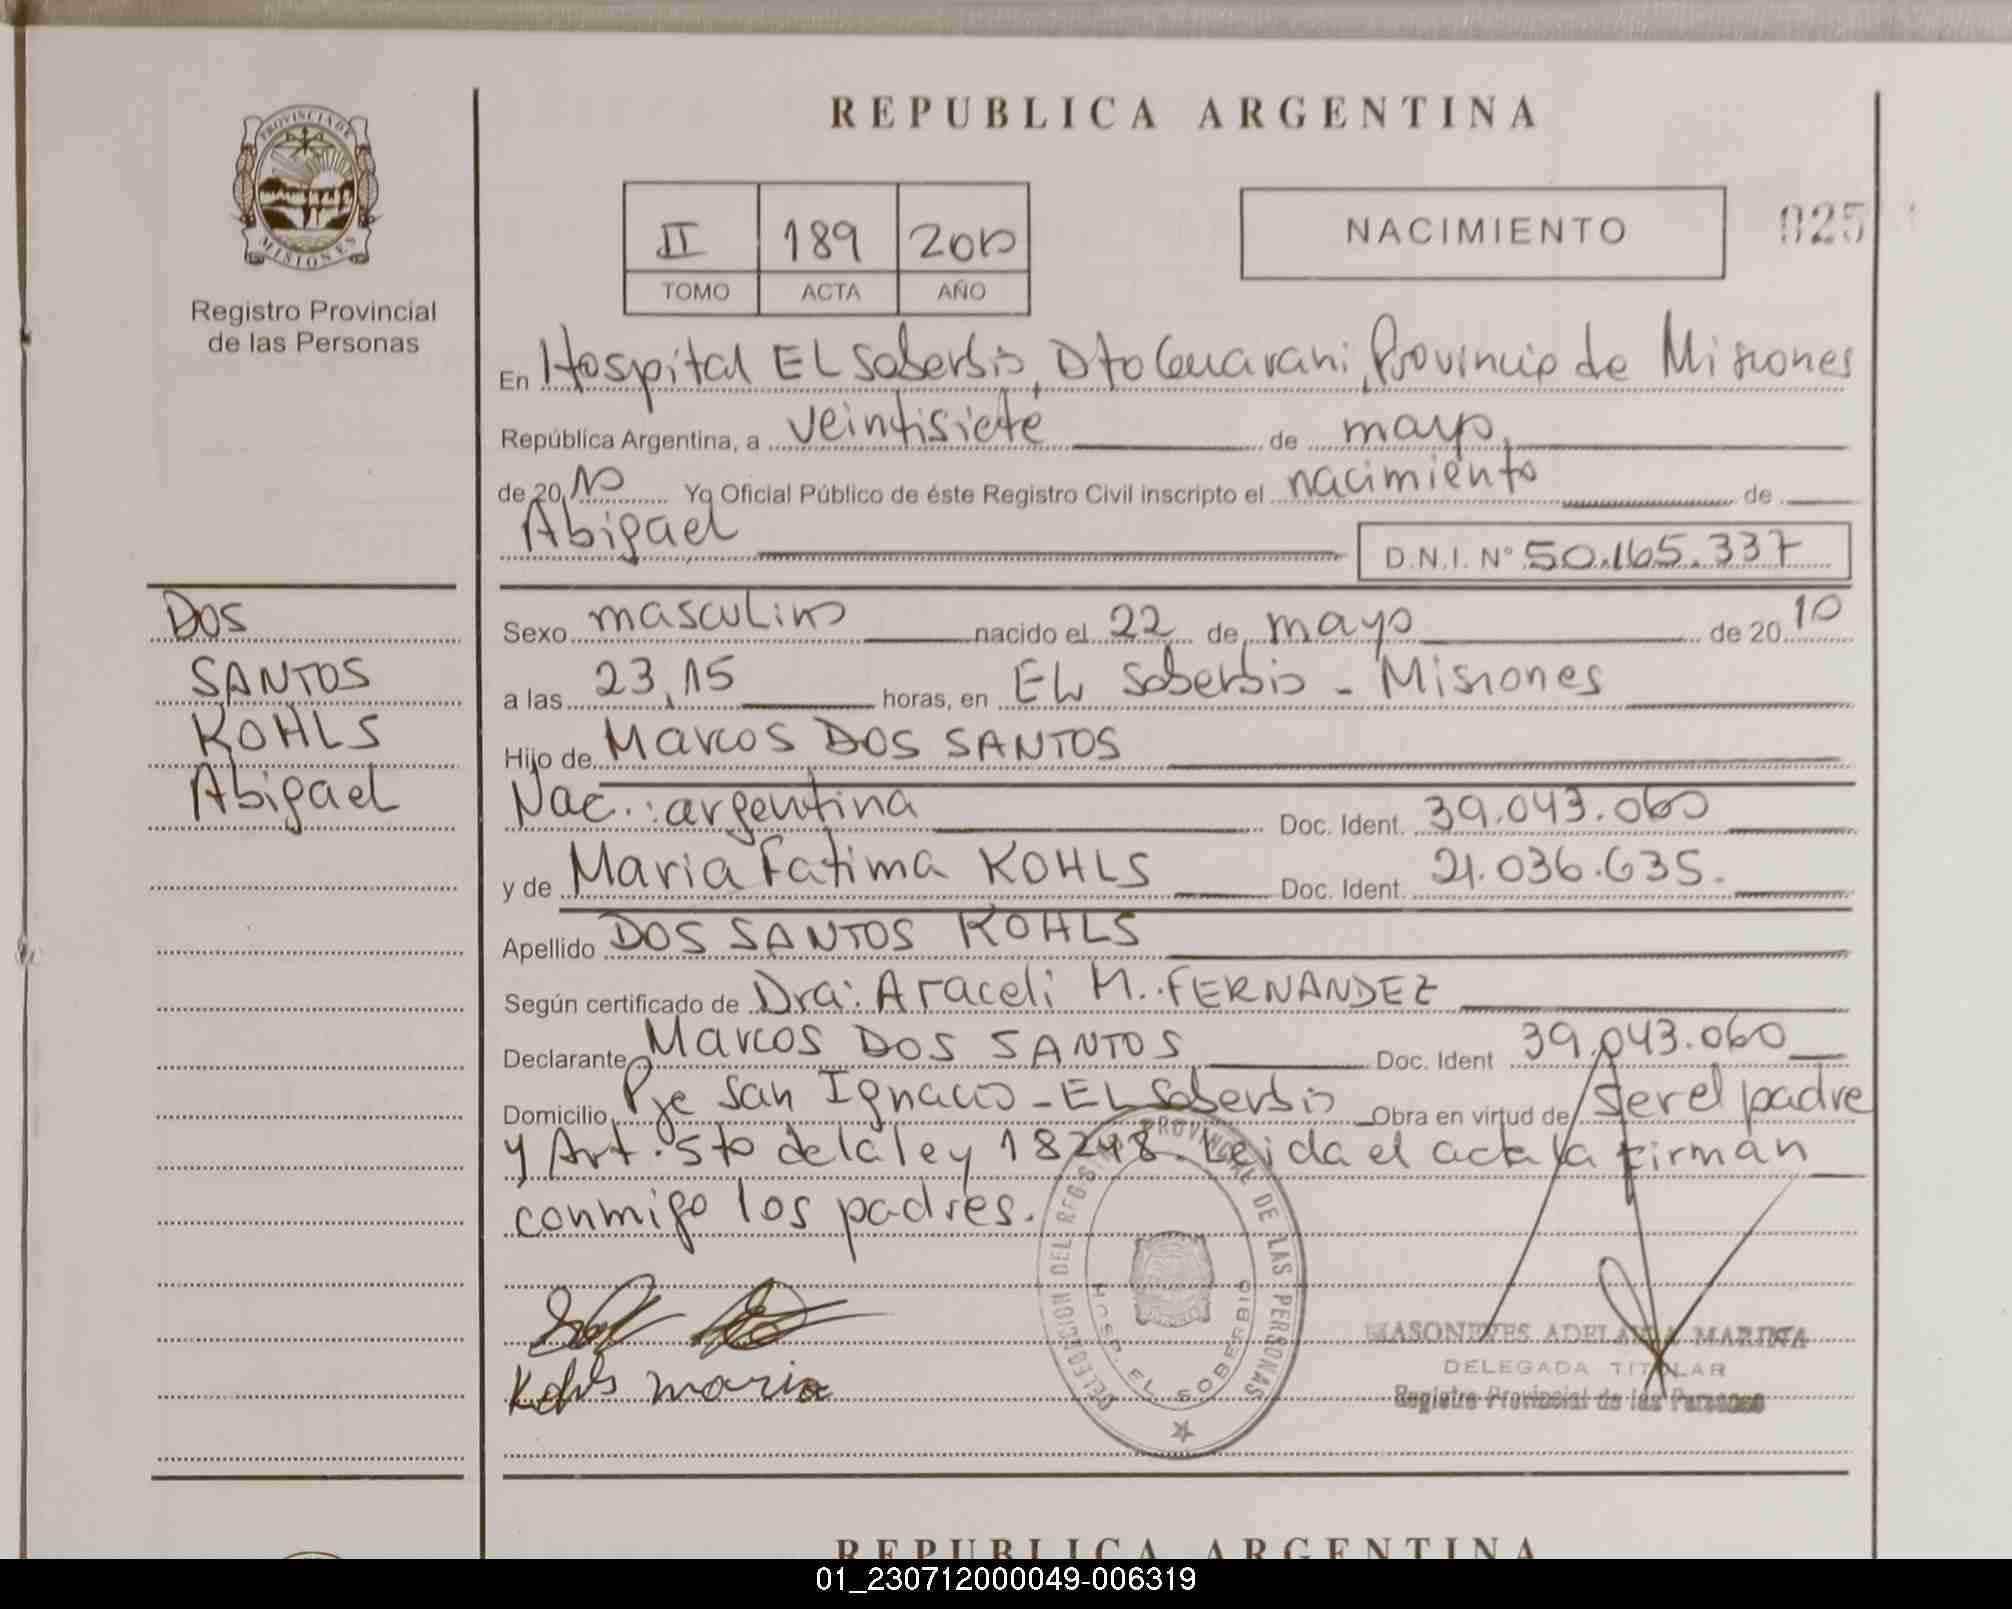 REPUBLICA ARGENTINA
PROVINCIA DE
MISIONES
Registro Provincial
de las Personas
II 189 2010
TOMO ACTA AÑO
NACIMIENTO
025
En Hospital EL Soberbio, Dto Guarani, Provincia de Misiones
República Argentina, a veintisiete de mayo,
de 20 10 Yo Oficial Público de éste Registro Civil inscripto el nacimiento de
Abigael
D.N.I. N° 50.165.337
DOS
SANTOS
KOHLS
Abigael
Sexo masculino nacido el 22 de mayo de 20 10
a las 23,15 horas, en EL Soberbio - Misiones
Hijo de Marcos DOS SANTOS
Nac.: argentina Doc. Ident. 39.043.060
y de Maria Fatima KOHLS Doc. Ident. 21.036.635.
Apellido DOS SANTOS KOHLS
Según certificado de Dra: Araceli M. FERNANDEZ
Declarante Marcos DOS SANTOS Doc. Ident 39.043.060
Domicilio Pje San Ignacio - EL Soberbio Obra en virtud de ser el padre
y Art. 5to de la ley 18248. Leida el acta la firman
conmigo los padres.
Kohls maria
DELEGACION DEL REGISTRO PROVINCIAL DE LAS PERSONAS
HOSP. EL SOBERBIO
MASONEVES ADELAIDA MARINA
DELEGADA TITULAR
Registro Provincial de las Personas
REPUBLICA ARGENTINA
01_230712000049-006319